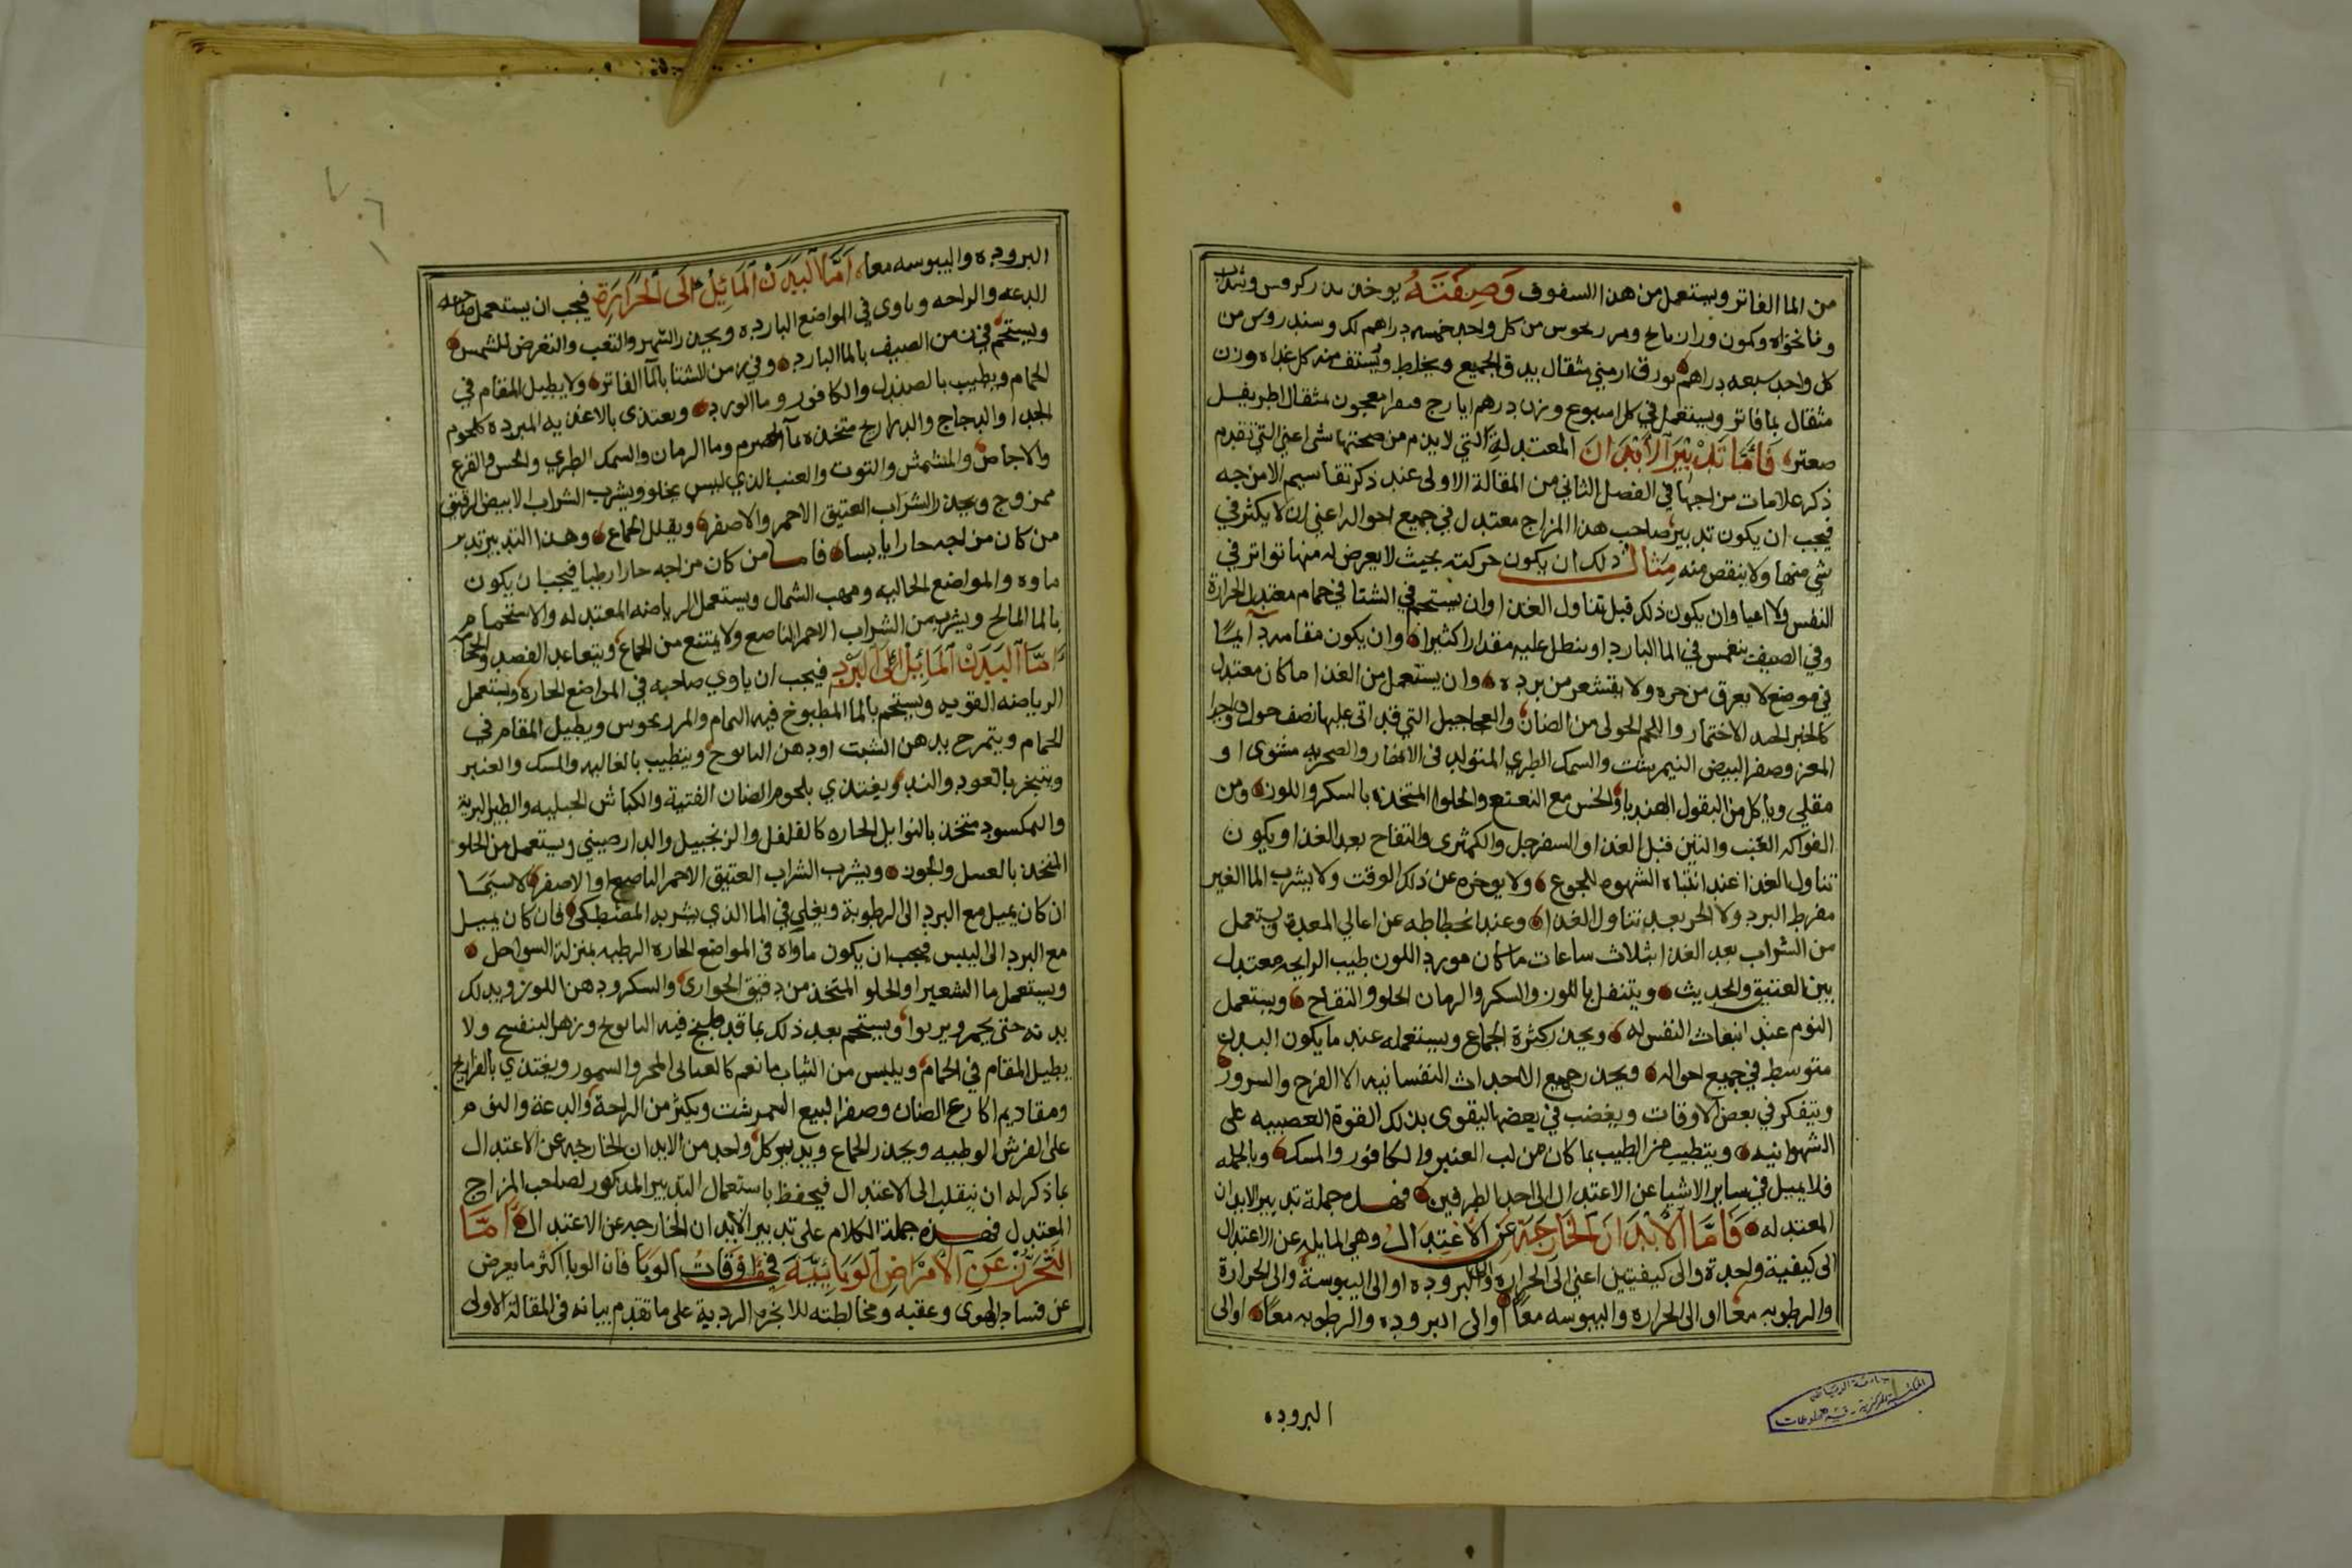 من الما الفاتر ويستعمل من هذا السفوف وَصِفَتَهُ يوخذ بزر كرفس وشبت
ونانخواه وكمون وراز يانج ومرزنجوس من كل واحد خمسه دراهم لك وسندروس من
كل واحد سبعه دراهم بورق ارميني مثقال يدق الجميع ويخلط ويُستف منه كل غداه وزن
مثقال بما فاتر ويستعمل في كل اسبوع وزن درهم ايارج فيقرا معجون بمثقال اطريفل
صعتر فَامَّا تَدْبيَر الأَبْدَانَ المعتدلة التي لا يذم من صحتها شى اعني التي تقدم
ذكر علامات مزاجها في الفصل الثاني من المقالة الاولى عند ذكر تقاسيم الامزجه
فيجب ان يكون تدبير صاحب هذا المزاج معتدل في جميع احواله اعني ان لا يكثر في
شى منها ولا ينقص منه مِثَال ذلك ان يكون حركته بحيث لا يعرض له منها تواتر في
النفس ولا اعيا وان يكون ذلك قبل تناول الغذا وان يستحم في الشتا في حمام معتدل الحرارة
وفي الصيف ينغمس في الما البارد او ينطل عليه مقدارا كثيرا وان يكون مقامه دايمًا
في موضع لا يعرق من حره ولا يقشعر من برده وان يستعمل من الغذا ما كان معتدل
كالخبز الجيد الاختمار واللحم الحولى من الضان والعجاجيل التي قد اتى عليها نصف حول وجدا
المعز وصفر البيض النيمرشت والسمك الطري المتولد فى الانهار والصخريه مشوى او
مقلي وياكل من البقول الهندبا والخس مع النعنع والحلوا المتخذه بالسكر واللوز ومن
الفواكه العنب والتين قبل الغذا والسفرجل والكمثرى والتفاح بعد الغذا ويكون
تناول الغذا عند انتباه الشهوه للجوع ولا يوخره عن ذلك الوقت ولا يشرب الما الغير
مفرط البرد ولا الحر بعد تناول الغدا وعند انحطاطه عن اعالي المعدة ويستعمل
من الشراب بعد الغذا بثلاث ساعات ما كان مورد اللون طيب الرايحه معتدل
بين العتيق والحديث ويتنقل باللوز والسكر والرمان الحلو والتفاح ويستعمل
النوم عند انبعاث النفس له ويحذر كثرة الجماع ويستعمله عند ما يكون البدن
متوسط في جميع احواله ويحذر جميع الاحداث النفسانيه الا الفرح والسرور
ويتفكر في بعض الاوقات ويغضب في بعضها ليقوى بذلك القوة العصبيه على
الشهوانيه ويتطيب من الطيب بما كان من لب العنبر والكافور والمسك وبالجمله
فلا يميل في ساير الاشيا عن الاعتدال الى احد الطرفين فهذه جملة تدبير الابدان
المعتدله فَامَّا الأَبْدَانَ الخَارجَة عَن الاعْتِدَالُ وهي المايله عن الاعتدال
الى كيفية واحدة والى كيفيتين اعني الى الحراره والى البروده او الى اليبوسة والى الحرارة
والرطوبه معا او الى الحراره واليبوسه معًا او الى البروده والرطوبه معًا او الى
البروده
البروده واليبوسه معا امَّا البَدَنْ المَائِلْ الَى الحَرَارَةِ فيجب ان يستعمل صاحبه
الدعه والراحه وياوى في المواضع البارده ويحذر السهر والتعب والتعرض للشمس
ويستحم في زمن الصيف بالما البارد وفي زمن الشتا بالما الفاتر ولا يطيل المقام في
الحمام ويطيب بالصندل والكافور وما الورد ويعتدى بالاغذيه المبرده كلحوم
الجدا والدجاج والدراريج متخذه بما الحصرم وما الرمان والسمك الطري والخس والقرع
والاجاص والمشمش والتوت والعنب الذي ليس بحلو ويشرب الشراب الابيض الرقيق
ممزوج ويحذر الشراب العتيق الاحمر والاصفر ويقلل الجماع وهذا التدبير تدبير
من كان مزاجه حارا يابسا فاما من كان مزاجه حارا رطبا فيجب ان يكون
ماوه والمواضع الخاليه ومهب الشمال ويستعمل الرياضه المعتدله والاستحمام
بالما المالح ويشرب من الشراب الاحمر الناصع ولا يمتنع من الجماع ويتعاهد الفصد والحجا
امَّا البَدَنْ المَائِلْ الَى البَرْدِ فيجب ان ياوي صاحبه في المواضع الحاره ويستعمل
الرياضه القويه ويستحم بالما المطبوخ فيه النمام والمرزنجوس ويطيل المقام في
الحمام ويتمرخ بدهن الشبت او دهن البابونج ويتطيب بالغاليه والمسك والعنبر
ويتبخر بالعود والند ويغتذي بلحوم الضان الفتية والكباش الجبليه والطير البرية
والمكسود متخذ بالتوابل الحاره كالفلفل والزنجبيل والدارصيني ويستعمل من الحلو
المتخذ بالعسل والجوز ويشرب الشراب العتيق الاحمر الناصع او الاصفر لا سيمَا
ان كان يميل مع البرد الى الرطوبة ويغلي في الما الذي يشربه المصطكى فان كان يميل
مع البرد الى اليبس فيجب ان يكون ماواه فى المواضع الحاره الرطبه بمنزلة السواحل
ويستعمل ما الشعير والحلو المتخذ من دقيق الحوارى والسكر ودهن اللوز ويدلك
بدنه حتى يحمر ويربوا ويستحم بعد ذلك بما قد طبخ فيه البابونج وزهر البنفسج ولا
يطيل المقام في الحمام ويلبس من الثياب ما نعم والسمور ويغتذي بالفراريج
ومقاديم اكارع الضان وصفر البيض النيمرشت ويكثر من الراحة والدعة والنوم
على الفرش الوطيه ويحذر الجماع ويدبر كل واحد من الابدان الخارجه عن الاعتدال
بما ذكر له ان ينقل الى الاعتدال فيحفظ باستعمال التدبير المذكور لصاحب المزاج
المعتدل فهذه جملة الكلام على تدبير الابدان الخارجه عن الاعتدال امَّا
التَحَرُّزْ عَنِ الامْرَاضِ الوَبَائِيَّة في اوْقَاتُ الوَبَا فان الوبا اكثر ما يعرض
عن فساد الهوى وعقبه ومخالطته للابخره الردية على ما تقدم بيانه فى المقالة الاولى